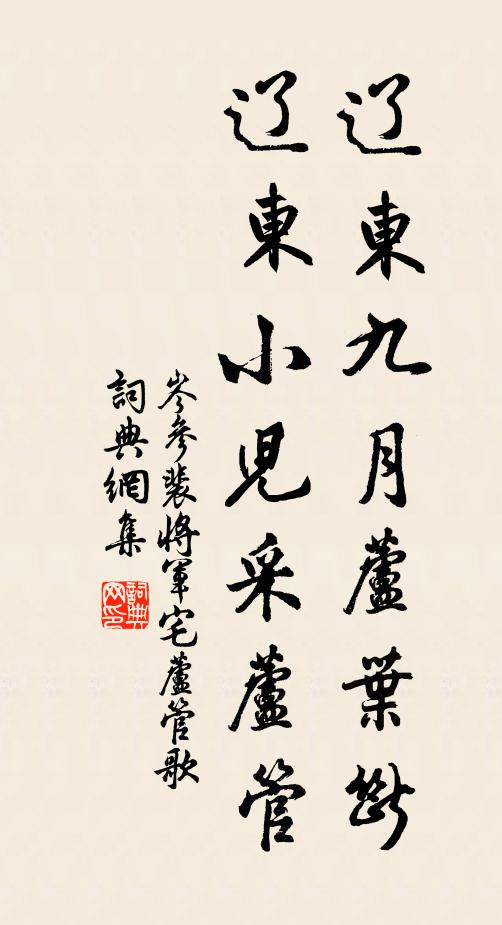 辽東九月蘆葉断
辽東小児采蘆管
岑參裴將軍宅蘆管歌
詞典網集
詞典网印